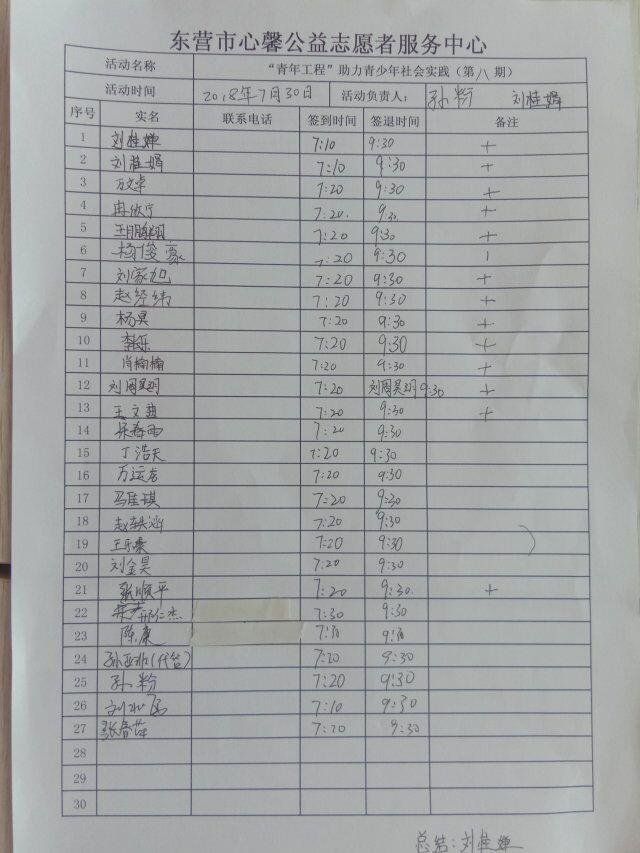 东营市心馨公益志愿者服务中心
活动名称 “青年工程”助力青少年社会实践（第八期）
活动时间 2018年7月30日 活动负责人： 孙粉 刘桂娟
序号 实名 联系电话 签到时间 签退时间 备注
1 刘桂婵 7:10 9:30 +
2 刘桂娟 7:10 9:30 +
3 万文卓 7:20 9:30 +
4 冉欣宁 7:20. 9:30 +
5 7:20 9:30 +
6 杨俊豪 7:20 9:30
7 刘家旭 7:20 9:30 +
8 赵经纬 7:20 9:30 +
9 杨昊 7:20 9:30 +
10 7:20 9:30 +
11 肖楠楠 7:20 9:30 +
12 刘周昊玥 7:20 刘周昊玥 9:30 +
13 王文 7:20 9:30 +
14 7:20 9:30
15 丁浩天 7:20 9:30
16 万运龙 7:20 9:30
17 马佳琪 7:20 9:30
18 赵轶 7:20 9:30
19 王乐 7:20 9:30
20 刘金昊 7:20 9:30
21 张顺平 7:20 9:30. +
22 邢仁杰 7:30 9:30
23 陈康 7:30 9:30
24 孙亚非(代签) 7:20 9:30
25 孙粉 7:20 9:30
26 7:10 9:30
27 张春萍 7:20 9:30
28
29
30
总结：刘桂婵